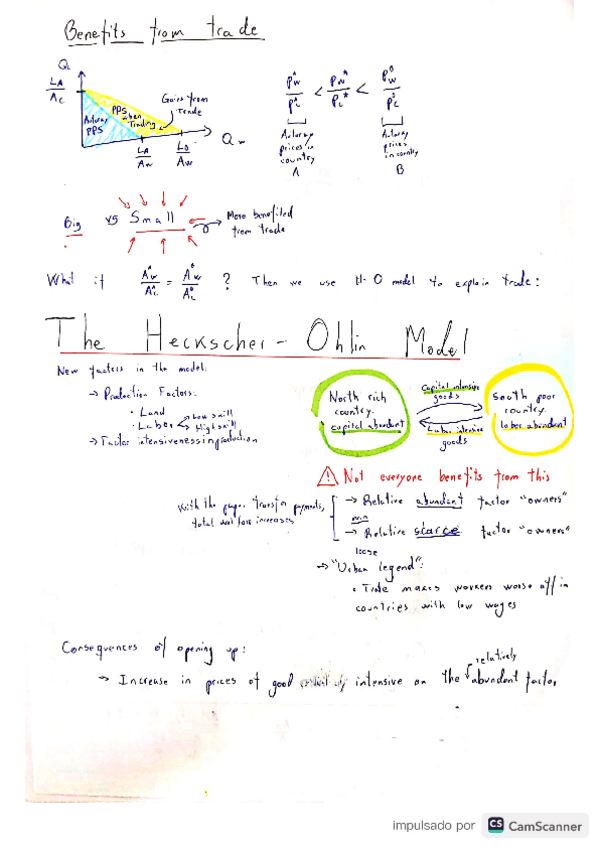 Benefits from trade
QL
LA
AC
Autarky PPS
PPS when Trading
Gains from Trade
Qw
LA
Aw
LB
Aw
PAW
PAL
<
PW*
PL*
<
PBW
PBL
Autarky prices in country A
Autarky prices in country B
Big vs Small
More benefited from trade
What if AAW / AAL = ABW / ABL ? Then we use H-O model to explain trade:
The Heckscher-Ohlin Model
New factors in the model:
→ Production Factors:
· Land
· Labor
Low skill
High skill
→ Factor intensiveness in production
North rich country.
capital abundant
Capital intensive goods
Labor intensive goods
South poor country.
labor abundant
! Not everyone benefits from this
With the proper transfer payments, total welfare increases
→ Relative abundant factor "owners"
win
→ Relative scarce factor "owners"
loose
→ "Urban legend":
· Trade makes workers worse off in
countries with low wages
Consequences of opening up:
→ Increase in prices of good intensive on the relatively abundant factor
impulsado por CS CamScanner